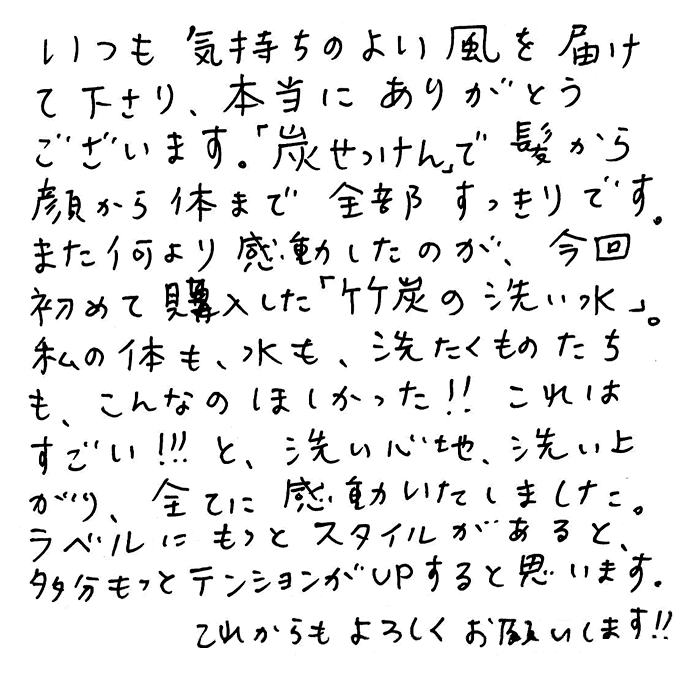 いつも 気持ちのよい 風を 届け
て下さり、本当に ありがとう
ございます。「炭せっけん」で 髪から
顔から 体まで 全部 すっきりです。
また何より 感動したのが、今回
初めて購入した「竹炭の洗い水」。
私の体も、水も、洗たくものたち
も、こんなのほしかった!! これは
すごい!!! と、洗い心地、洗い上
がり、全てに 感動いたしました。
ラベルに もっと スタイルがあると、
多分もっとテンションがUPすると思います。
これからも よろしく お願いします!!